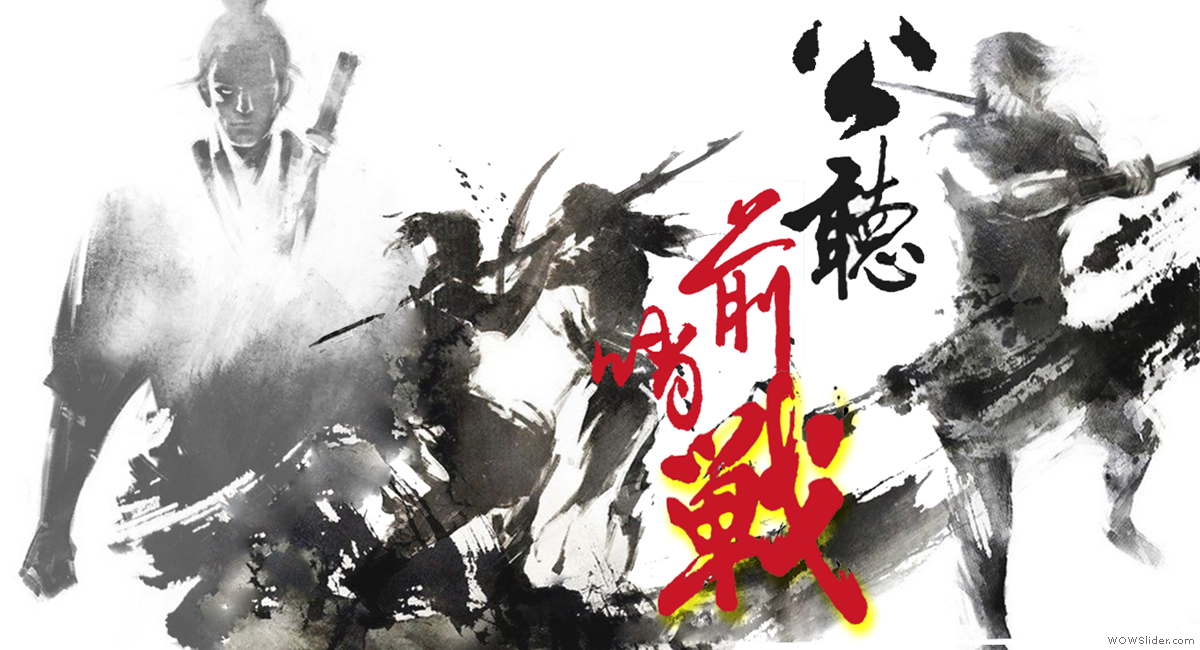 公聽
前哨
戰
WOWSlider.com